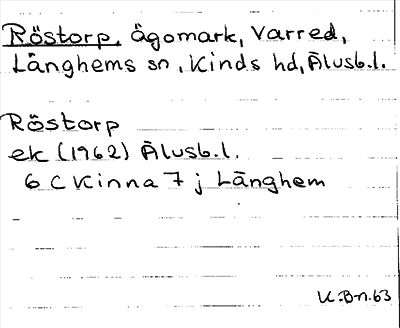 Röstorp, ägomark, Varred,
Länghems sn, Kinds hd, Älvsb.l.
Röstorp
ek (1962) Älvsb.l.
6 C Kinna 7 j Länghem
K.B-n.63